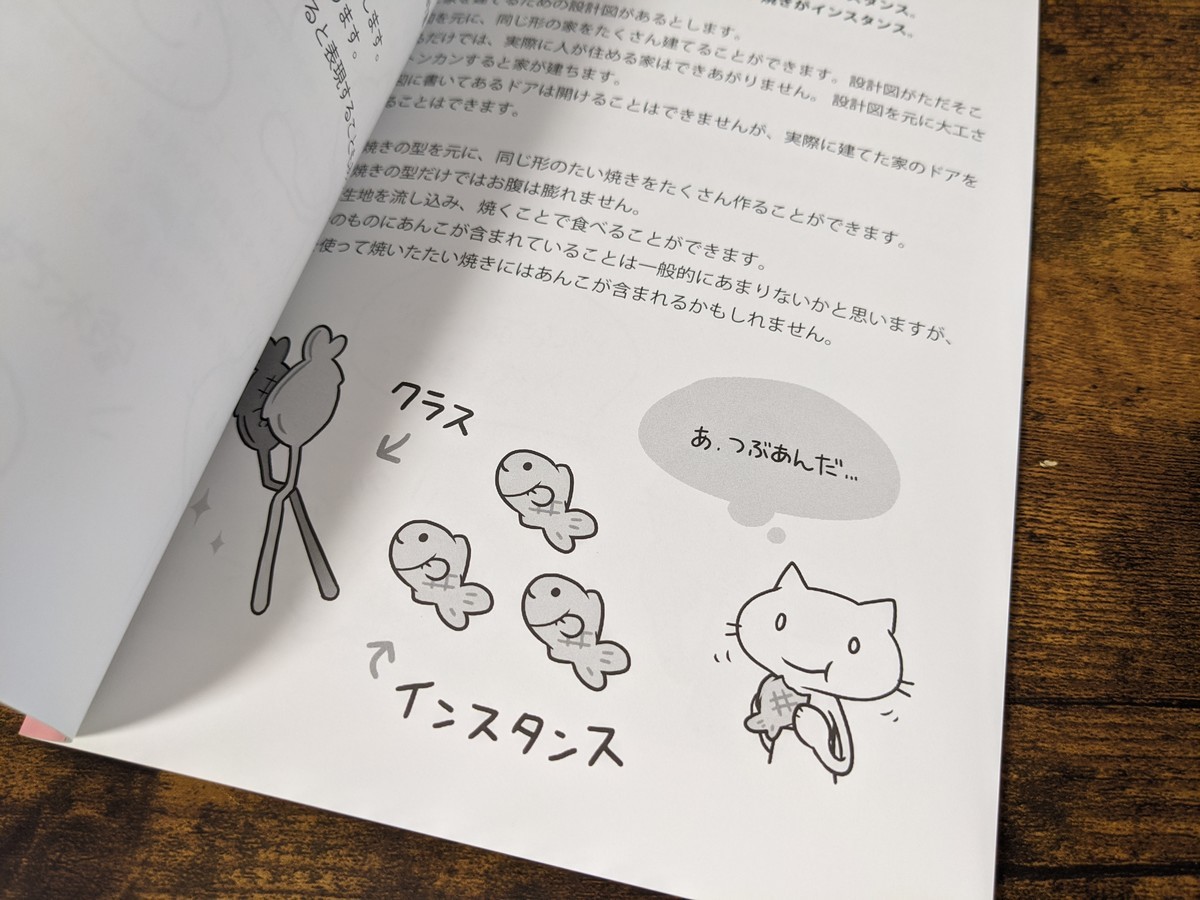 します。
ります。
ると表現することも
焼きがインスタンス。
を建てるための設計図があるとします。
図を元に、同じ形の家をたくさん建てることができます。設計図がただそこ
るだけでは、実際に人が住める家はできあがりません。設計図を元に大工さ
トンカンすると家が建ちます。
図に書いてあるドアは開けることはできませんが、実際に建てた家のドアを
ることはできます。
焼きの型を元に、同じ形のたい焼きをたくさん作ることができます。
焼きの型だけではお腹は膨れません。
生地を流し込み、焼くことで食べることができます。
のものにあんこが含まれていることは一般的にあまりないかと思いますが、
使って焼いたたい焼きにはあんこが含まれるかもしれません。
クラス
あ.つぶあんだ...
インスタンス